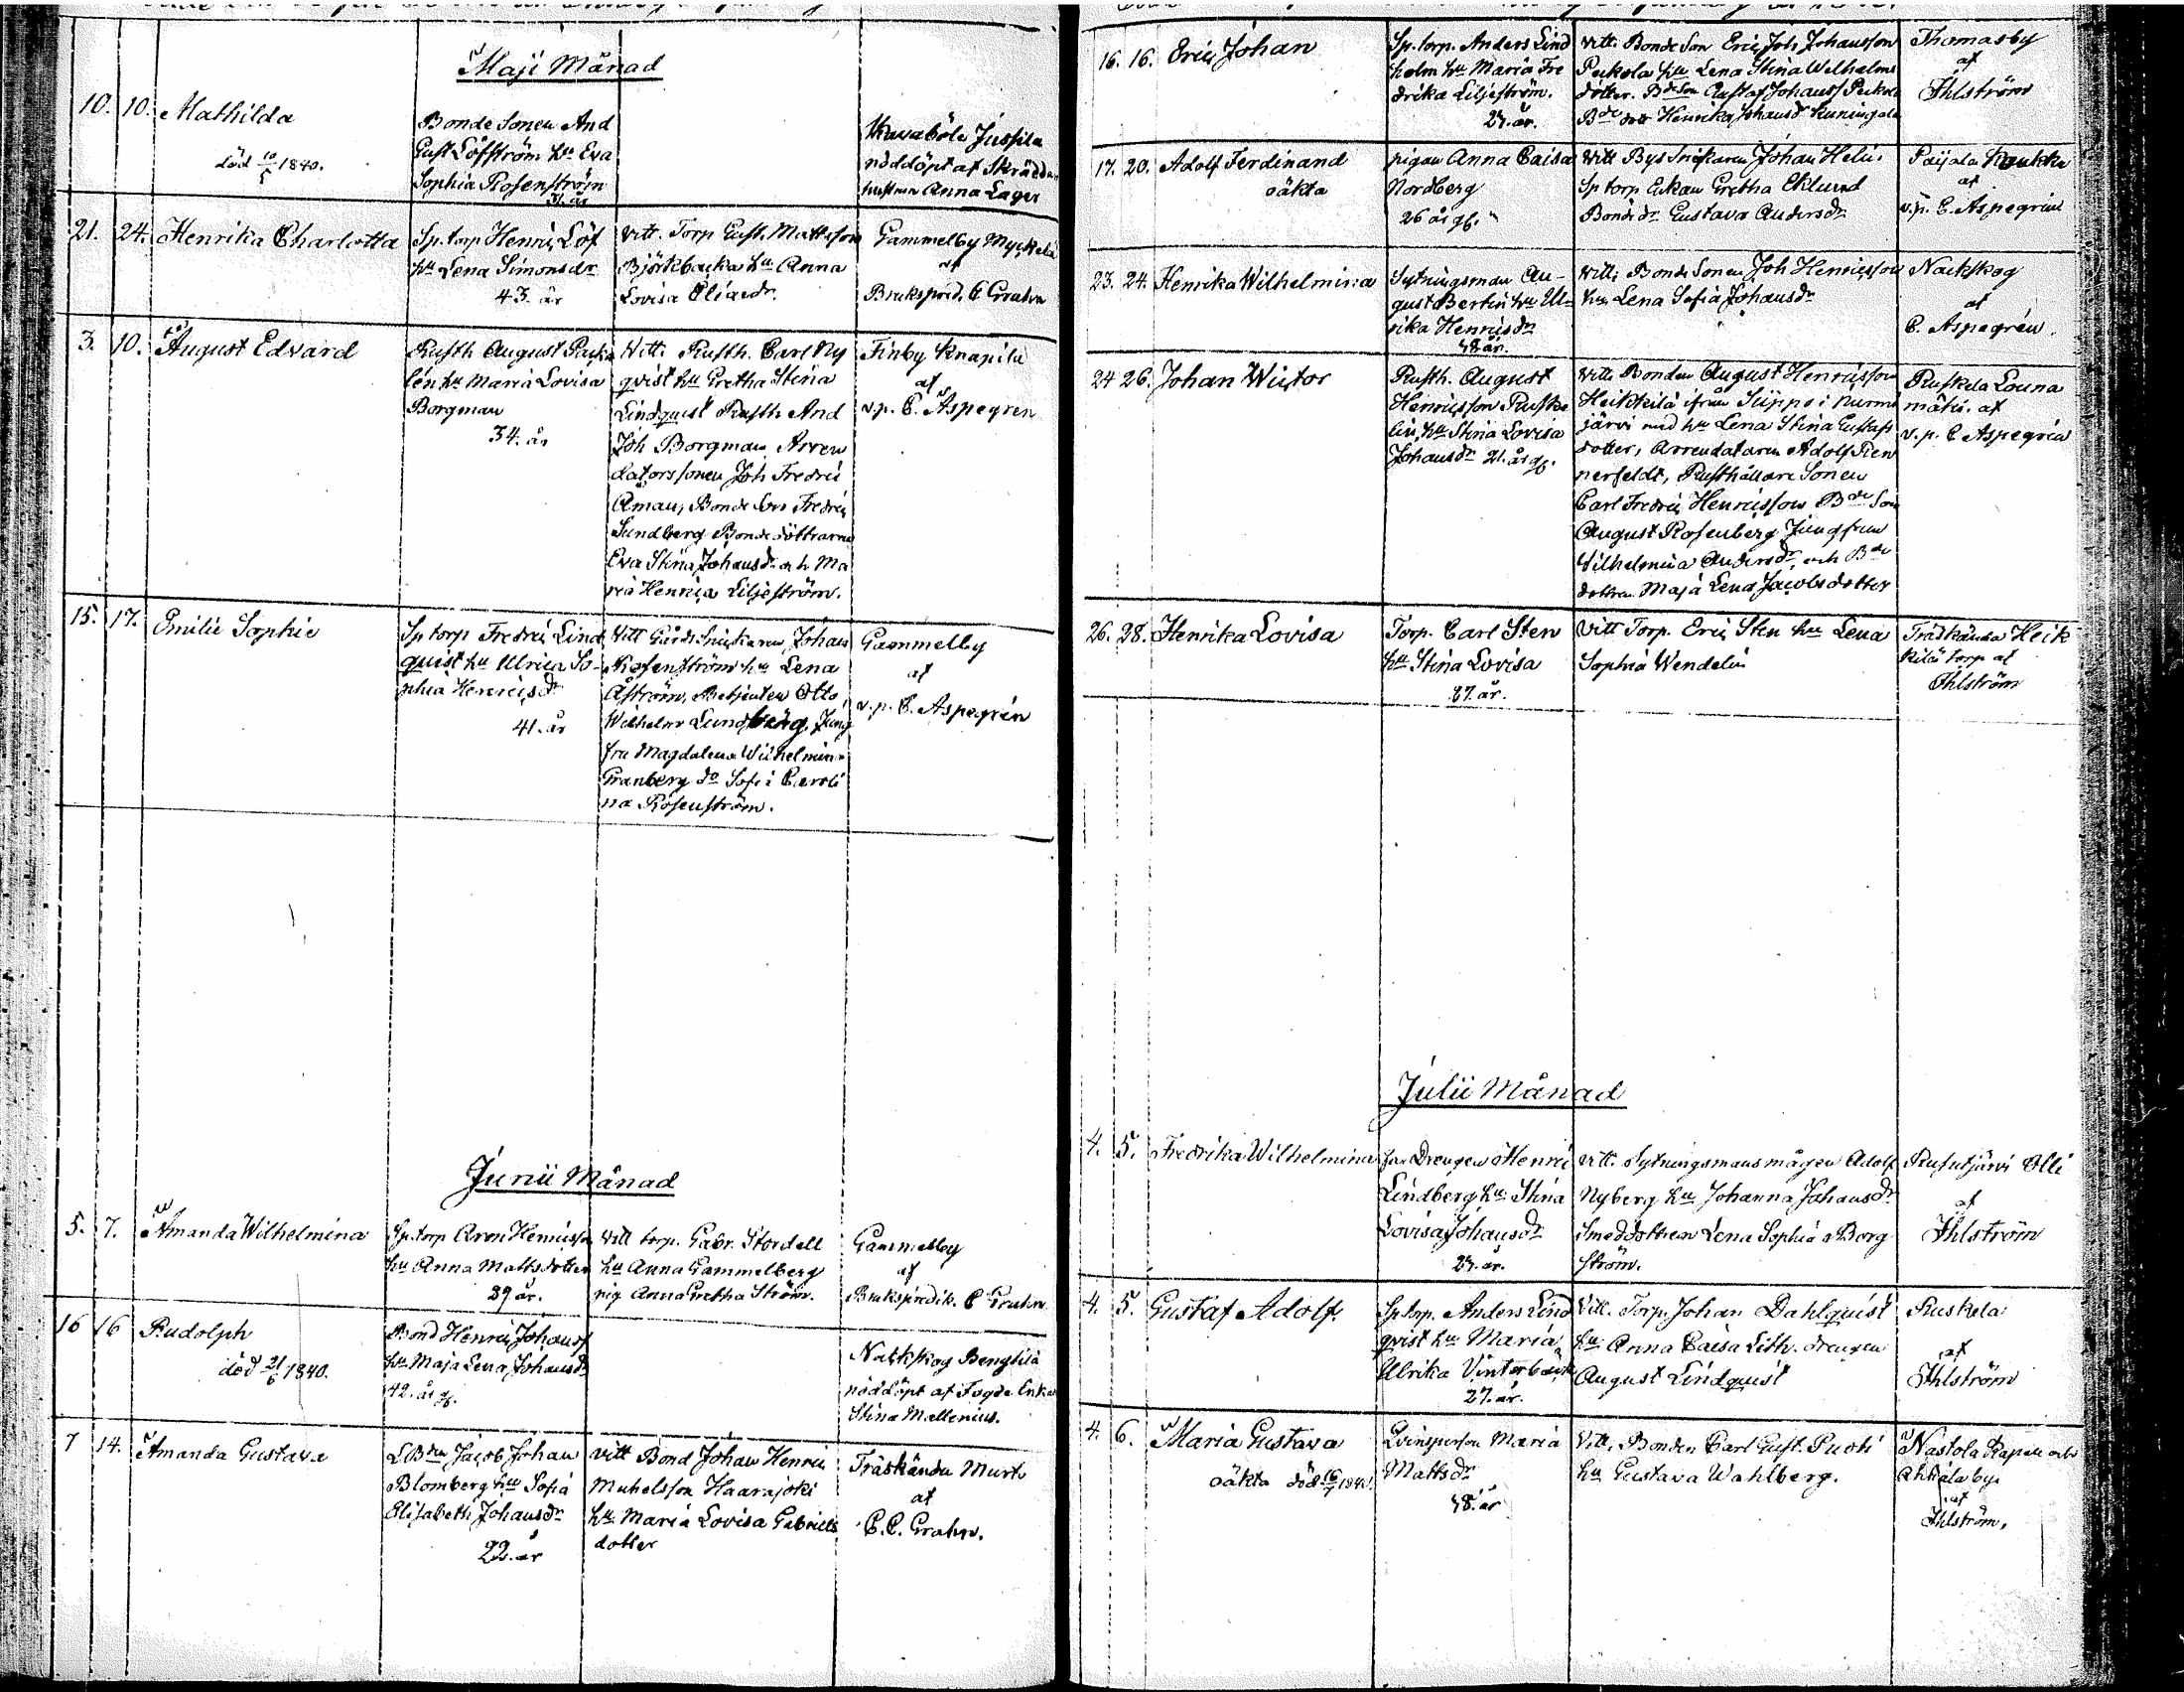 Maji Månad
10. 10. Mathilda
död 10/5 1840.
Bonde Sonen And
Gust Löfström hu Eva
Sophia Rosenström
31. år
Skavaböle Jussila
nöddöpt af Skräddar
hustrun Anna Lager
21. 24. Henrika Charlotta
Sp. torp Henric Löf
hu Lena Simonsdr
43. år
Vitt. Torp Gust. Mattsson
Björkbacka hu Anna
Lovisa Eliaedr.
Gammelby Myckelä
af
Brukspred. C Grahn
3. 10. August Edvard
Rusth August
lén hu Maria Lovisa
Borgman
34. år
Vitt: Rusth. Carl Ny
qvist hu Gretha Stina
Lindquist Rusth And
Joh Borgman Arren
datorssonen Joh Fredric
Åman, Bonde Son Fredric
Sundberg Bonde döttrarne
Eva Stina Johansdr och Ma
ria Henrica Liljeström.
Finby Knapila
af
v.p. C. Aspegren
15. 17. Emilie Sophie
Sp torp Fredric Lind
quist hu Ulrica So-
phia Henricsdr
41. år
Vitt Gårds Snickaren Johan
Rosenström hu Lena
Åström, Betjenten Otto
Wilhelm Lundberg. Jung
fru Magdalena Wilhelmina
Granberg do Sofi Caroli
na Rosenström.
Gammelby
af
v.p. C. Aspegrén
Junii Månad
5. 7. Amanda Wilhelmina
Sp. torp Aron Henricsson
hu Anna Mattsdotter
39 år.
Vitt torp. Gabr. Stordell
hu Anna Gammelberg
pig Anna Gretha Ström.
Gammelby
af
Brukspredik. C Grahn
16 16 Rudolph
död 21/6 1840.
Bond Henric Johanss
hu Maja Lena Johansdr
42. år g.
Nackskog Bengtilä
nöddöpt af Fogde Enkan
Stina Mallenius.
7 14. Amanda Gustava
LBden Jacob Johan
Blomberg hu Sofia
Elisabeth Johansdr
22. år
Vitt Bond Johan Henric
Michelsson Haarajoki
hu Maria Lovisa Gabriels
dotter
Träskända Murto
af
C. C. Grahn.
16. 16. Eric Johan
Sp. torp. Anders Lind
holm hu Maria Fre
drika Liljeström.
27. år.
Vitt. Bonde Son Eric Joh Johansson
Peckola hu Lena Stina Wilhelms
dotter. Bde Son Gustaf Johanss Peckola
Bde dott Henrika Johansdr Kuningala
Thomasby
af
Ihlström
17. 20. Adolf Ferdinand
oäkta
pigan Anna Caisa
Nordberg
26 år g.
Vitt Bys Snickaren Johan Helin
Sp torp Enkan Gretha Eklund
Bonde dr Gustava Andersdr
Paijala Koukku
af
v.p. C. Aspegrén
23. 24. Henrika Wilhelmina
Sytningsman Au-
gust Bertin hu Ul-
rika Henricsdr
48 år.
Vitt: Bonde Sonen Joh Henricsson
hu Lena Sofia Johansdr
Nackskog
af
C. Aspegrén.
24 26. Johan Wictor
Rusth. August
Henricsson Ruske
hu Stina Lovisa
Johansdr 21. år g.
Vitt: Bonden August Henricsson
Heikkilä ifrån Seppo i Nurmi
järvi med hu Lena Stina Gustafs
dotter, Arrendatorn Adolf
nerfeldt, Rusthållare Sonen
Carl Fredric Henricsson Bde Son
August Rosenberg Jungfrun
Wilhelmina Andersdr och Bde
dottren Maja Lena Jacobsdotter
Ruskela Louna
mäki. af
v.p. C Aspegrén
26. 28. Henrika Lovisa
Torp. Carl Sten
hu Stina Lovisa
27. år.
Vitt Torp. Eric Sten hu Lena
Sophia Wendelin
Träskända Heik
kilä torp af
Ihlström
Julii Månad
4. 5. Fredrika Wilhelmina
Drengen Henric
Lindberg hu Stina
Lovisa Johansdr
27. år.
Vitt. Sytningsmansmågen Adolf
Nyberg hu Johanna Johansdr
Smeddottren Lena Sophia Borg
ström.
Rusutjärvi Olli
af
Ihlström
4. 5. Gustaf Adolf.
Sp torp. Anders Lind
qvist hu Maria
Ulrika Vinterbäck
27. år.
Vitt. Torp. Johan Dahlquist
hu Anna Caisa Lith. drengen
August Lindquist
Ruskela
af
Ihlström
4. 6. Maria Gustava
oäkta död 16/7 1840.
Qvinsperson Maria
Mattsdr
48. år
Vitt, Bonden Carl Gust. Puoti
hu Gustava Wahlberg.
Nastola Kapell och
Ahtiala by.
af
Ihlström.